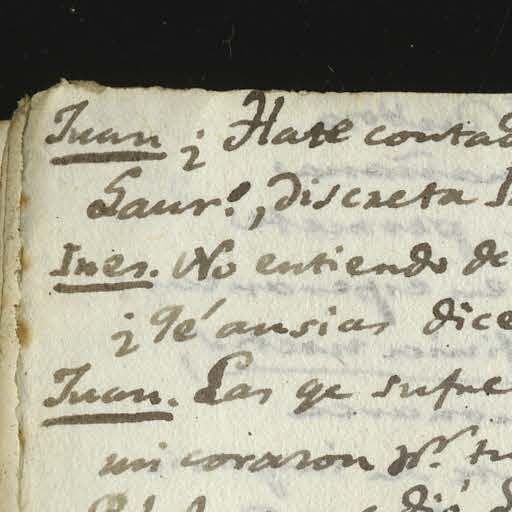 Juan ¿Hate contad
Laur.º, discreta I
Ines. No entiendo de
¿qé ansias dice
Juan. Las qe sufre
mi corazon pr. tu